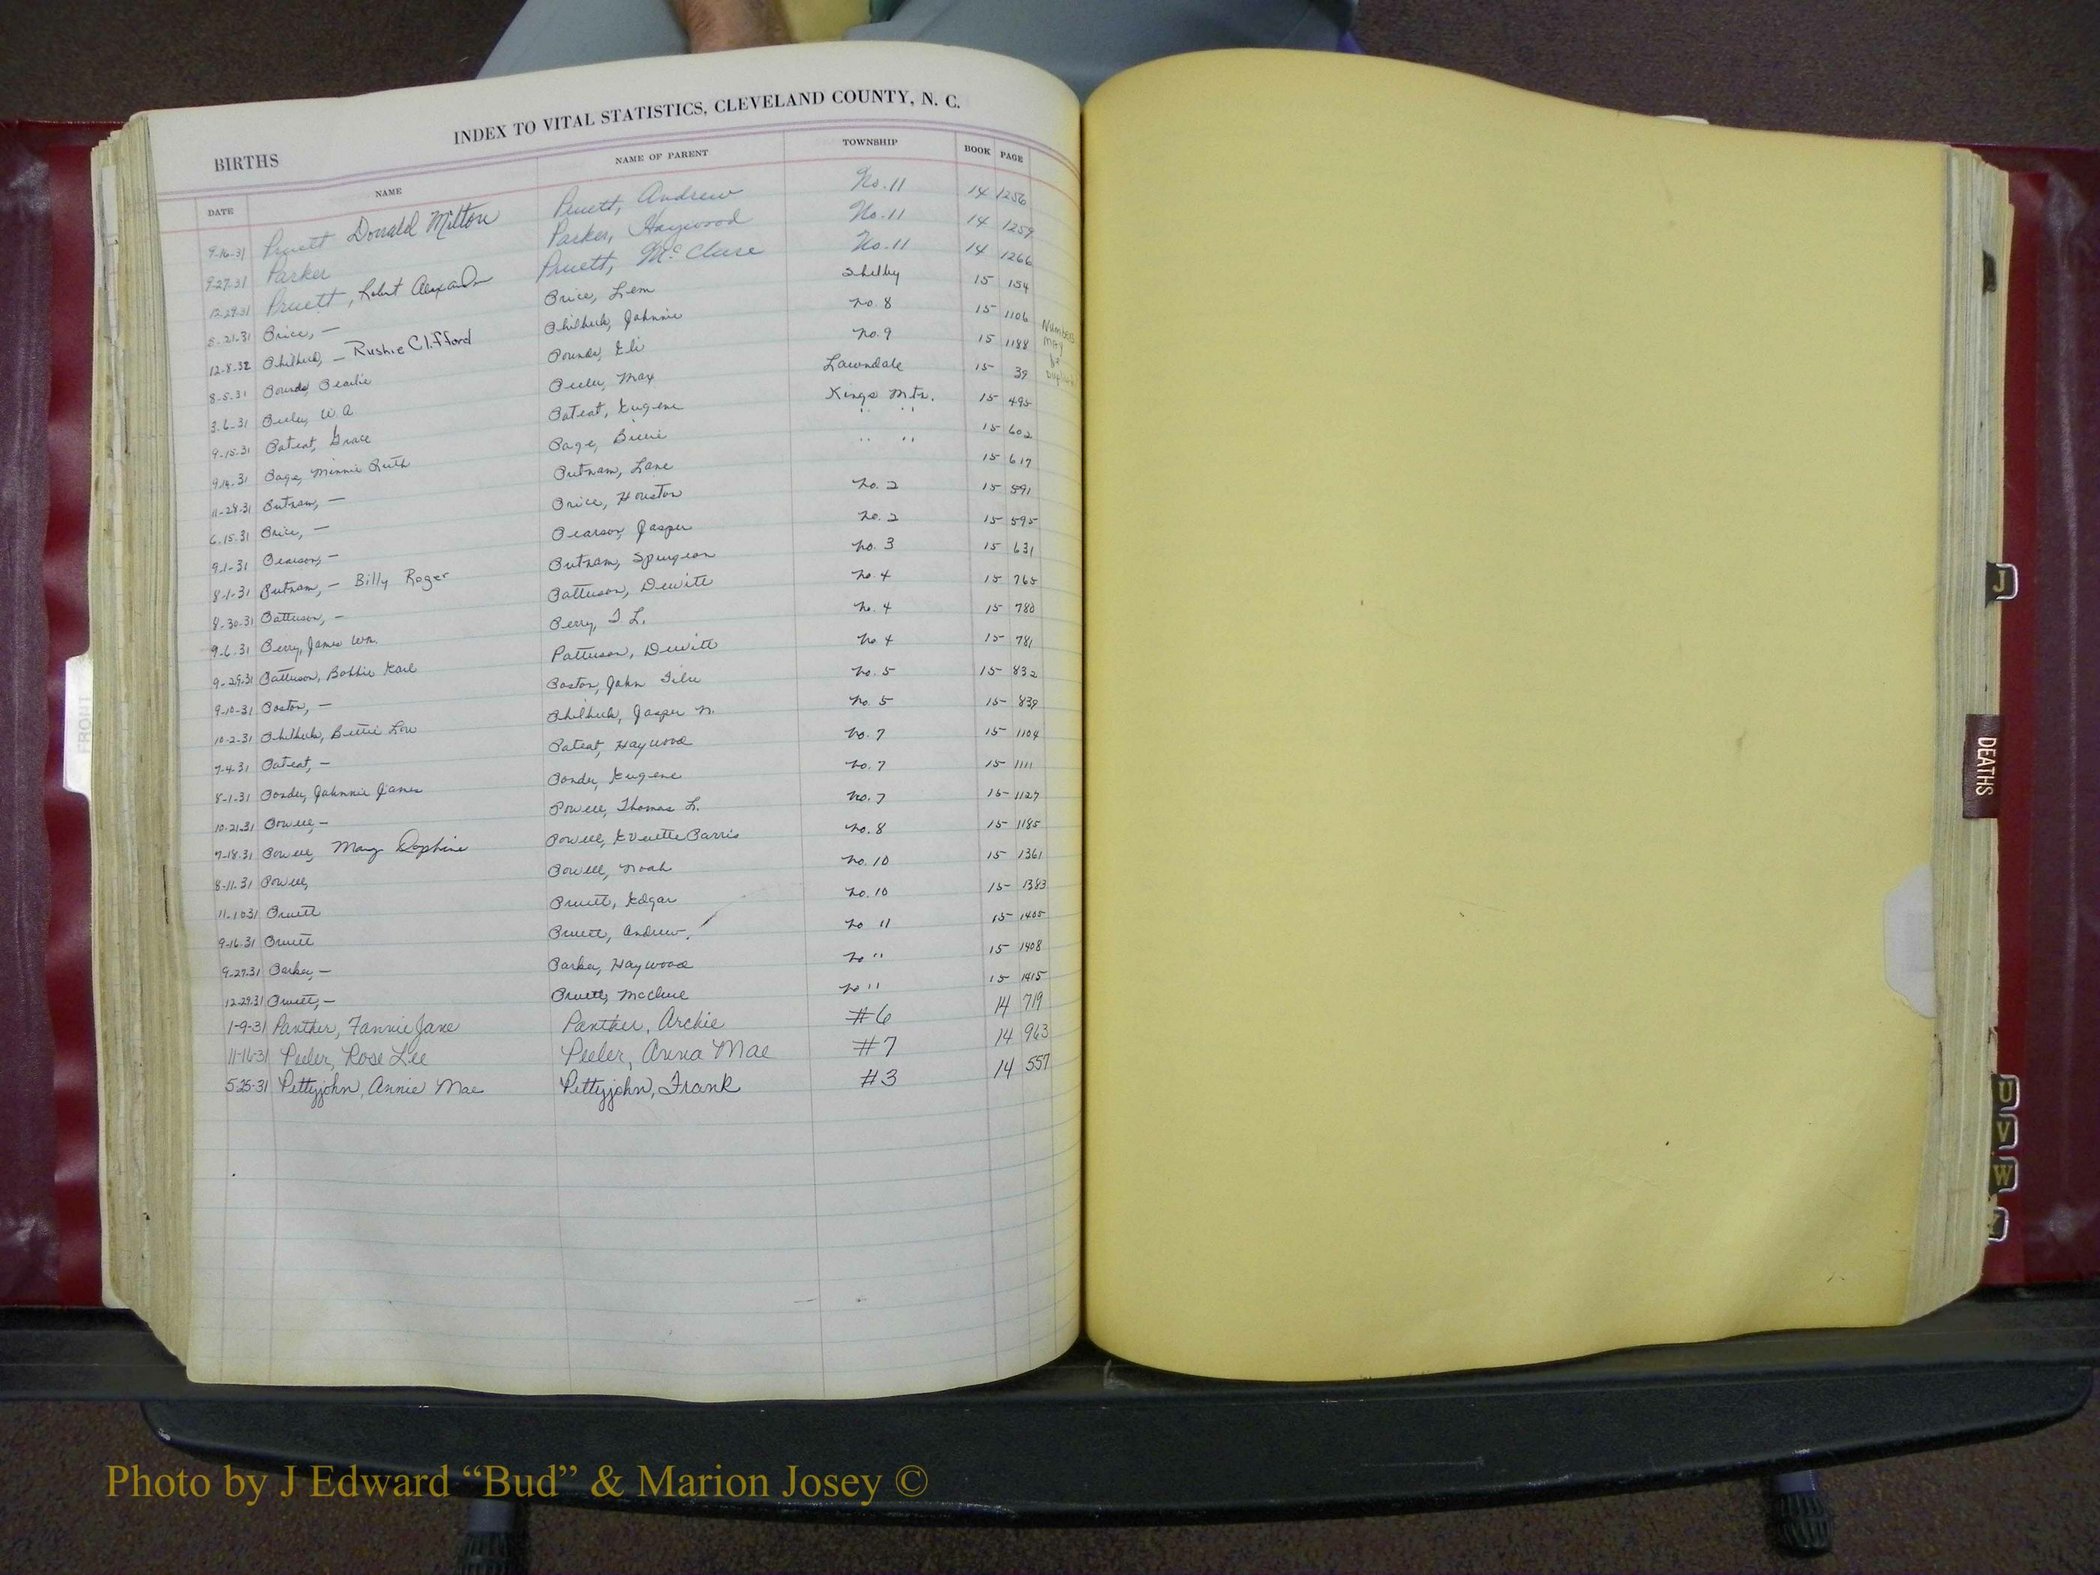 INDEX TO VITAL STATISTICS, CLEVELAND COUNTY, N. C.
BIRTHS
DATE NAME NAME OF PARENT TOWNSHIP BOOK PAGE
9-16-31 Pruett Donald Milton Pruett, Andrew No. 11 14 1256
9-27-31 Parker Parker, Haywood No. 11 14 1259
12-29-31 Pruett, Robert Alexander Pruett, McClure No. 11 14 1266
8-21-31 Price, — Price, Lem Shelby 15 154
12-8-32 Philbeck, — Rushie Clifford Philbeck, Johnnie No. 8 15 1106
Numbers May be
8-5-31 Pounds, Pearlie Pounds, Eli No. 9 15 1188
3-6-31 Peeler, W. A. Peeler, Max Lawndale 15 39
9-15-31 Poteat, Grace Poteat, Eugene Kings Mtn. 15 495
9-14-31 Page, Minnie Ruth Page, Billie " " 15 602
11-28-31 Putnam, — Putnam, Lane " " 15 617
6-15-31 Price, — Price, Houston No. 2 15 591
9-1-31 Pearson, — Pearson, Jasper No. 2 15 595
8-1-31 Putnam, — Billy Roger Putnam, Spurgeon No. 3 15 631
8-30-31 Patterson, — Patterson, Dewitt No. 4 15 765
9-6-31 Perry, James Wm. Perry, T L. No. 4 15 780
9-29-31 Patterson, Bobbie Karl Patterson, Dewitt No. 4 15 781
9-10-31 Poston, — Poston, John No. 5 15 832
10-2-31 Philbeck, Bettie Lou Philbeck, Jasper N. No. 5 15 839
7-4-31 Poteat, — Poteat, Haywood No. 7 15 1104
8-1-31 Ponder, Johnnie James Ponder, Eugene No. 7 15 1111
10-21-31 Powell, — Powell, Thomas L. No. 7 15 1127
7-18-31 Powell, Mary Daphine Powell, Everette Parris No. 8 15 1185
8-11-31 Powell, Powell, Noah No. 10 15 1361
11-10-31 Pruett Pruett, Edgar No. 10 15 1383
9-16-31 Pruett Pruett, Andrew No 11 15 1405
9-27-31 Parker, — Parker, Haywood No " 15 1408
12-29-31 Pruett, — Pruett, McClure No 11 15 1415
1-9-31 Panther, Fannie Jane Panther, Archie #6 14 719
11-16-31 Peeler, Rose Lee Peeler, Anna Mae #7 14 963
5-25-31 Pettyjohn, Annie Mae Pettyjohn, Frank #3 14 557
FRONT
J
DEATHS
U
V
W
Photo by J Edward “Bud” & Marion Josey ©